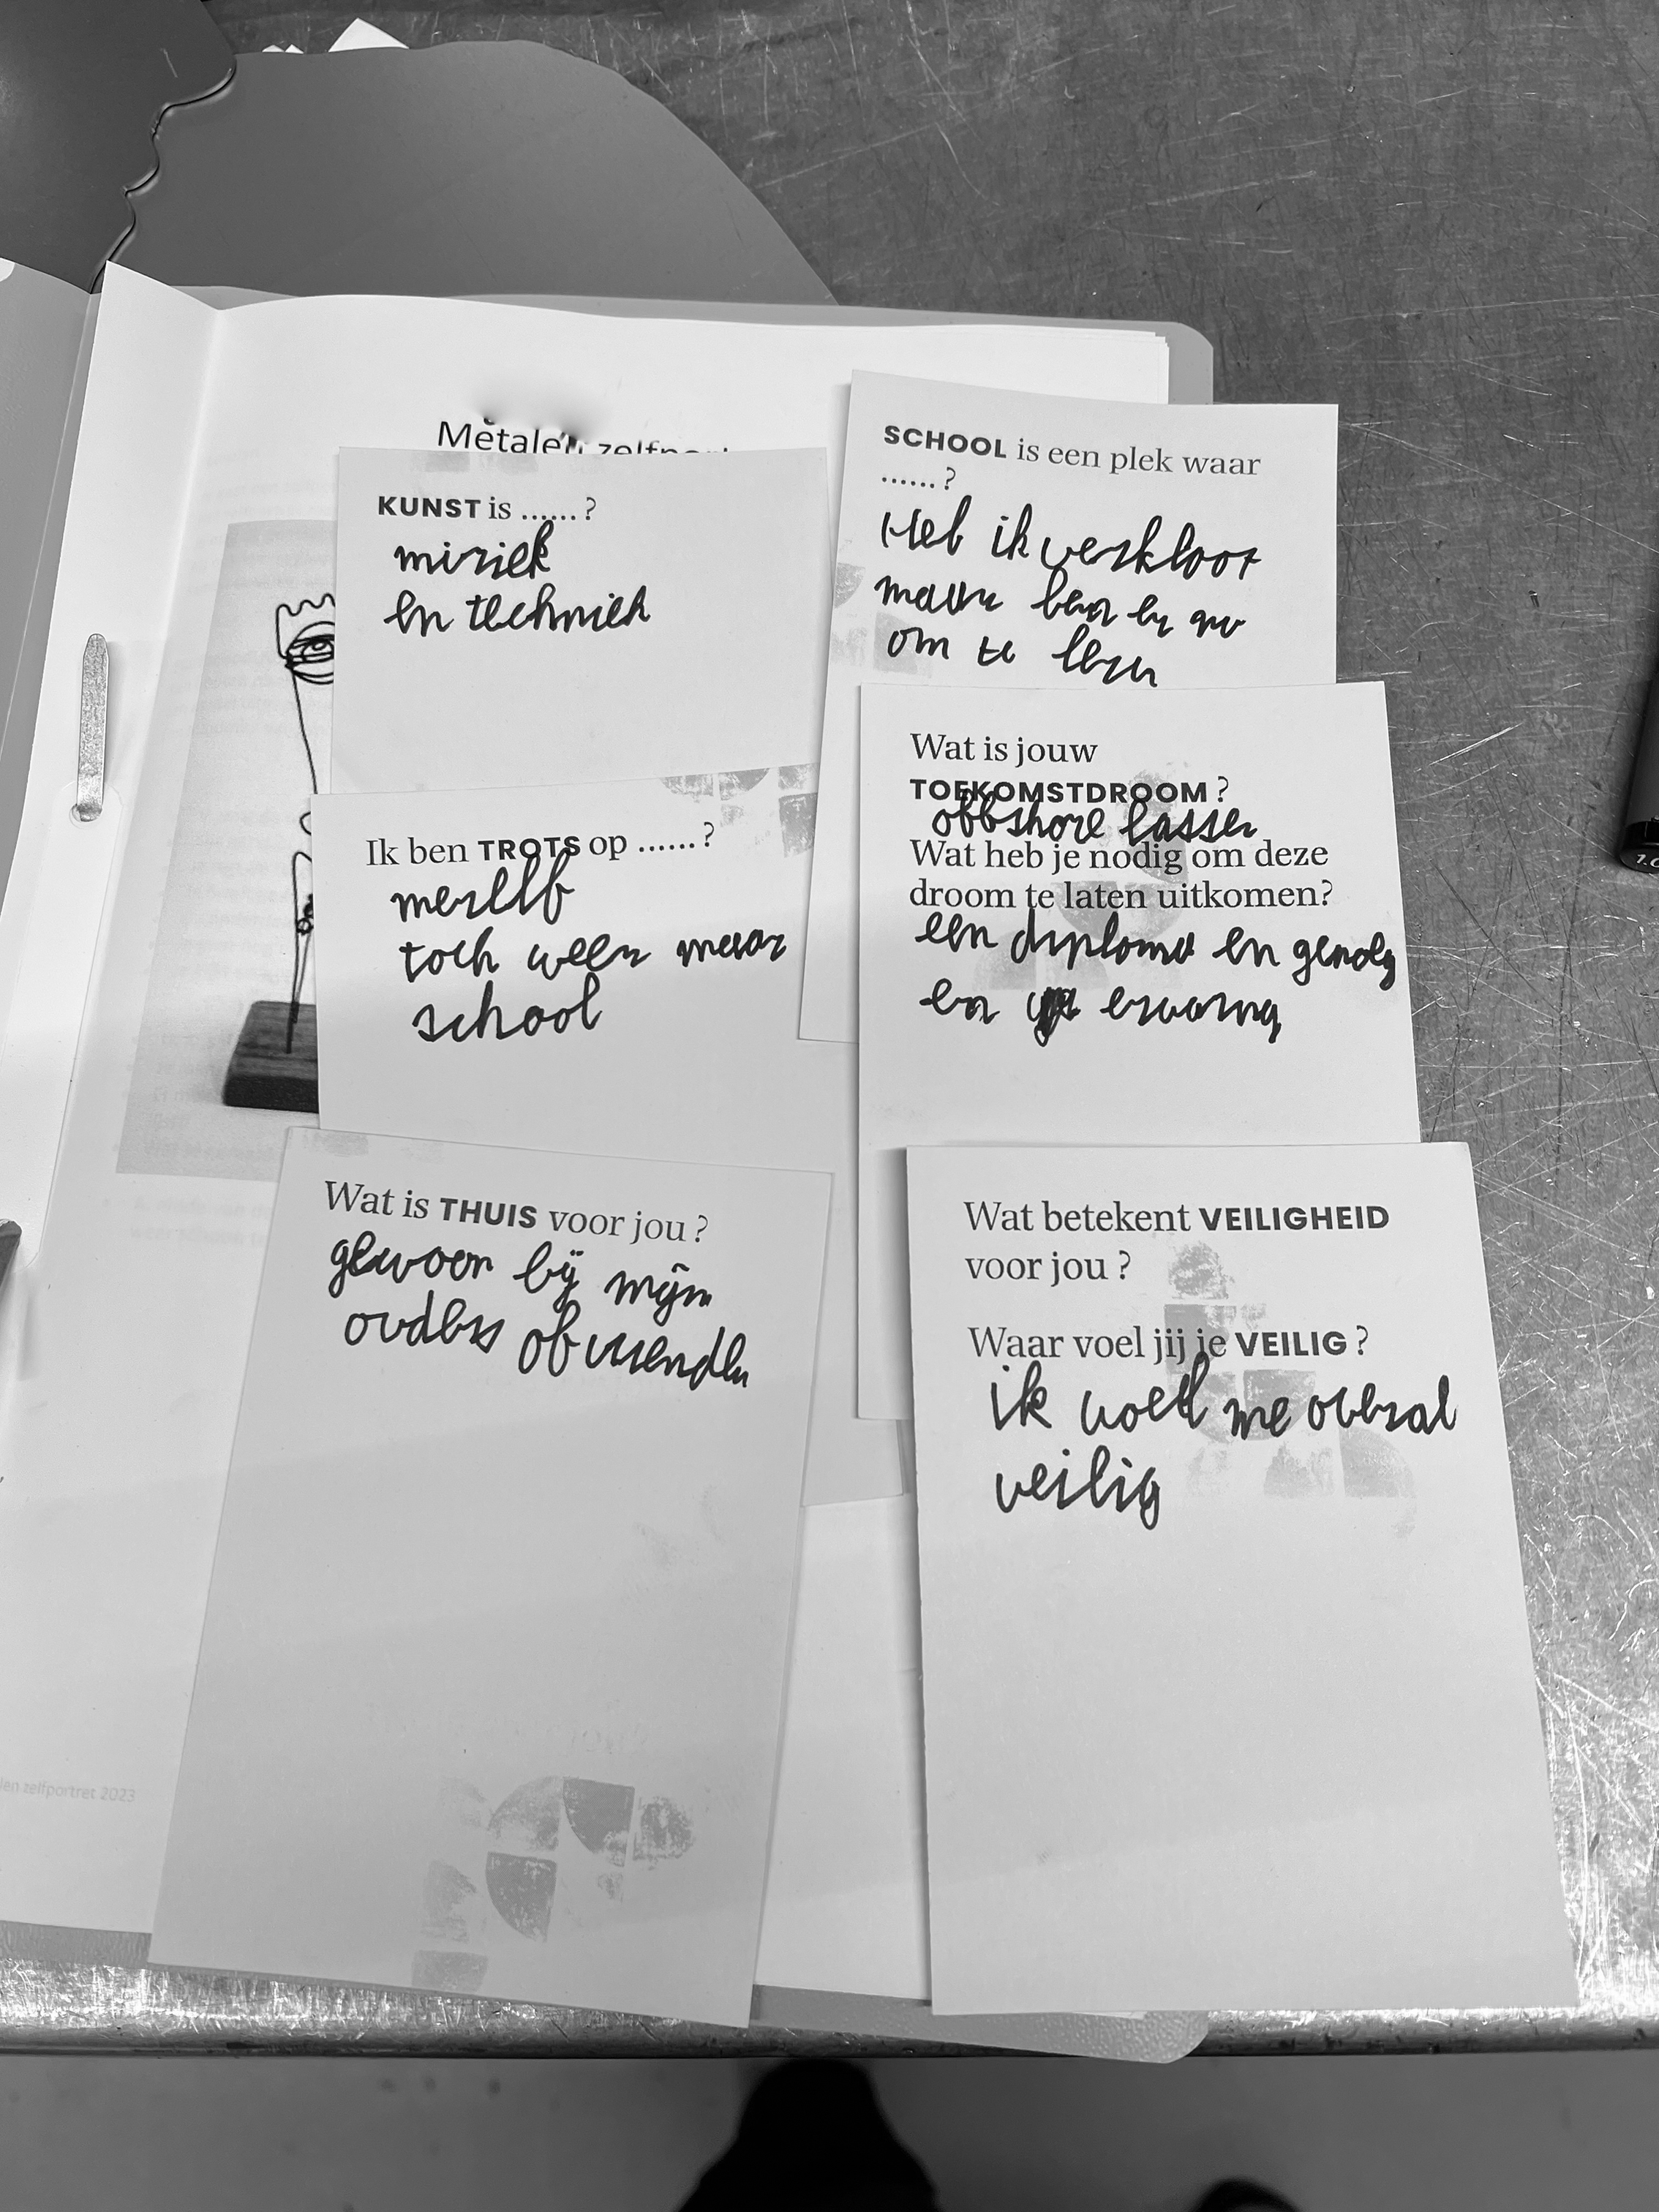 Metalen
KUNST is ......?
muziek
en techniek
SCHOOL is een plek waar
......?
Heb ik verkloot
maar ben er nu
om te leren
Ik ben TROTS op ......?
mezelf
toch weer naar
school
Wat is jouw
TOEKOMSTDROOM ?
offshore lasser
Wat heb je nodig om deze
droom te laten uitkomen?
een diploma en genoeg
en ervaring
Wat is THUIS voor jou ?
gewoon bij mijn
ouders of vrienden
Wat betekent VEILIGHEID
voor jou ?
Waar voel jij je VEILIG ?
ik voel me overal
veilig
len zelfportret 2023